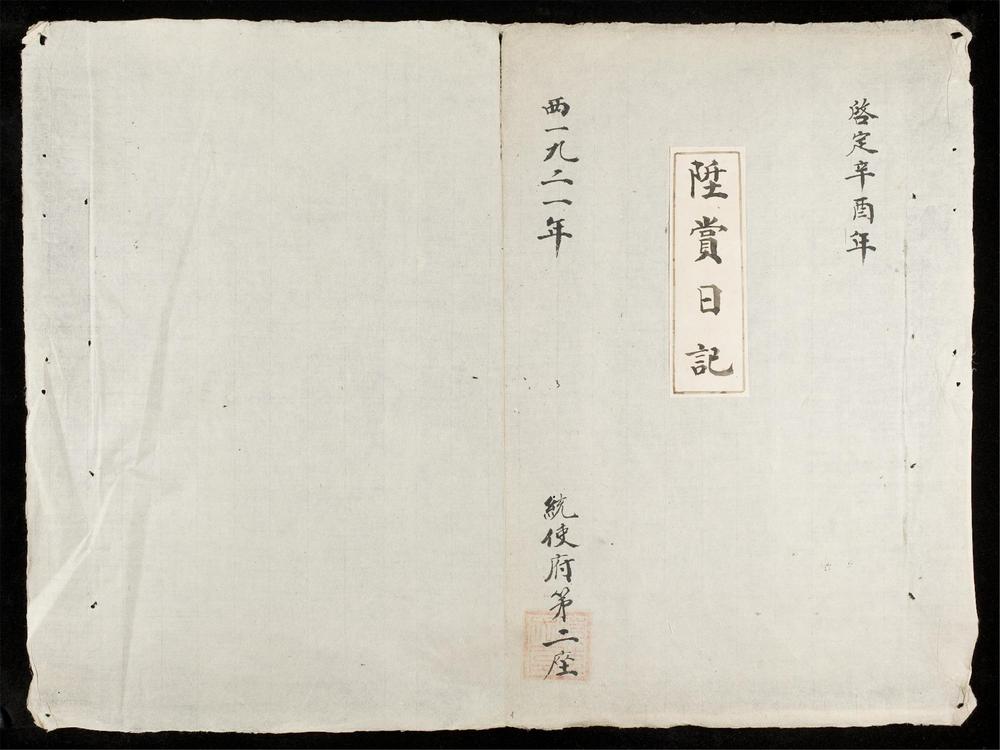 啓定辛酉年
陞賞日記
西一九二一年
統使府第二座